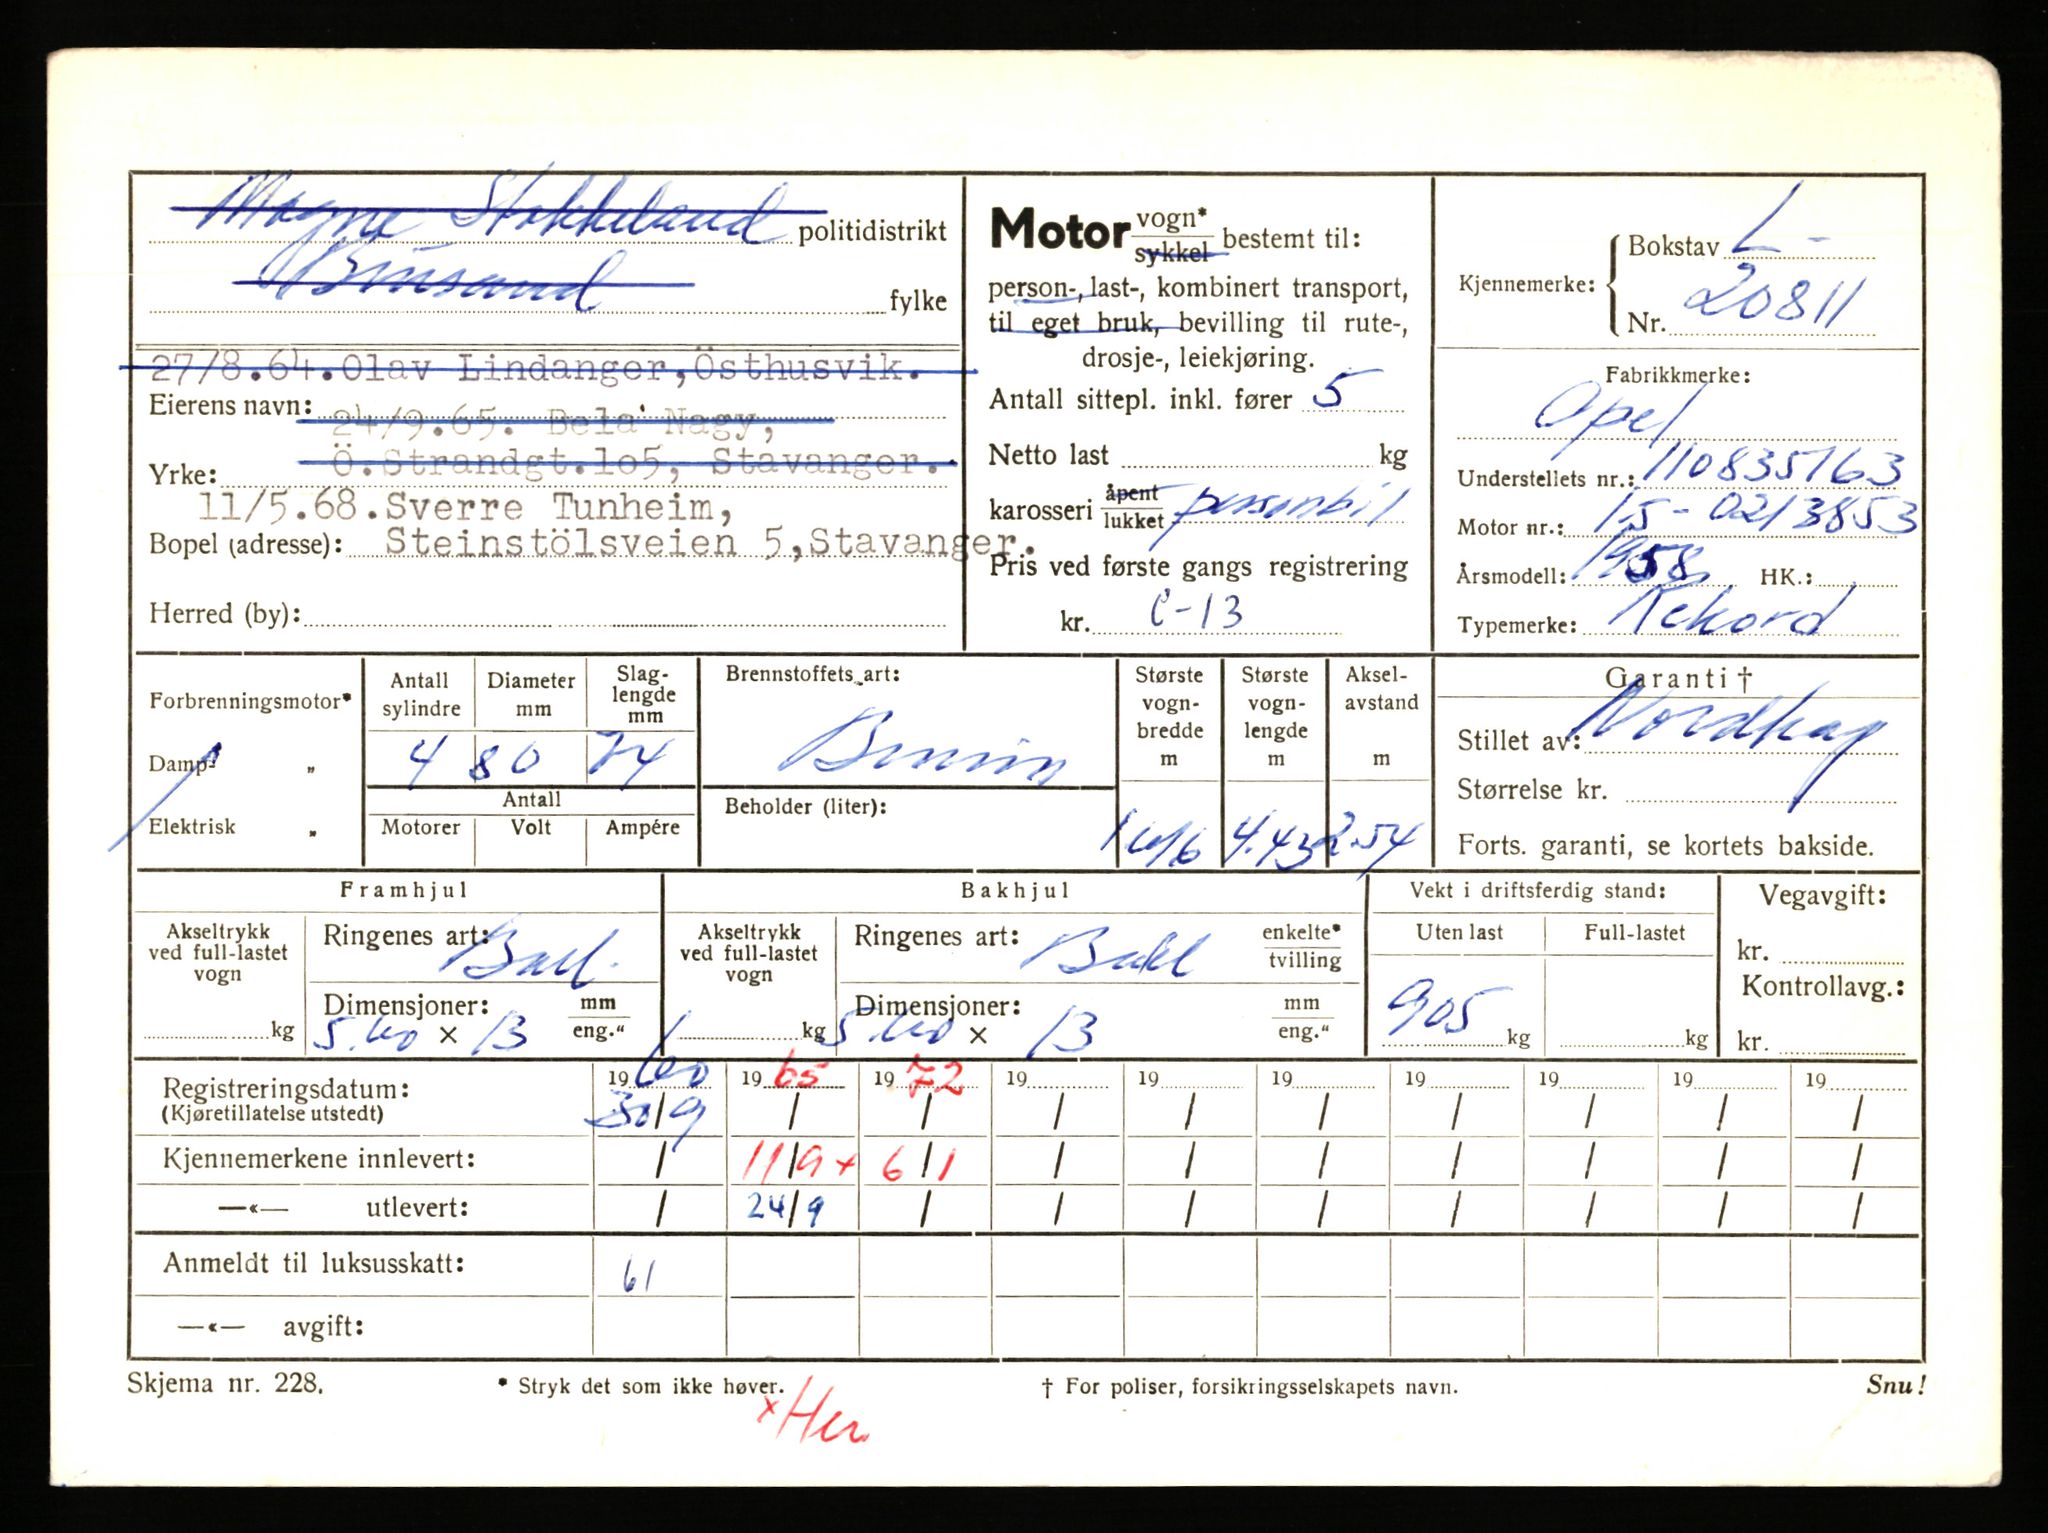 Magne Stokkeland politidistrikt
Brusand fylke
27/8.64.Olav Lindanger,Östhusvik.
Eierens navn: 24/9.65. Bela Nagy,
Yrke: Ö.Strandgt.1o5, Stavanger.
11/5.68.Sverre Tunheim,
Bopel (adresse): Steinstölsveien 5,Stavanger.
Herred (by):
Motor vogn* / sykkel bestemt til:
person-, last-, kombinert transport,
til eget bruk, bevilling til rute-,
drosje-, leiekjøring.
Antall sittepl. inkl. fører 5
Netto last kg
karosseri åpent / lukket personbil
Pris ved første gangs registrering
kr. C-13
Kjennemerke: Bokstav L-
Nr. 20811
Fabrikkmerke:
Opel
Understellets nr.: 110835763
Motor nr.: 1.5-0213853
Årsmodell: 1958 HK.:
Typemerke: Rekord
Forbrenningsmotor*
Damp- „
Elektrisk „
Antall sylindre Diameter mm Slag-lengde mm
4 80 74
Antall
Motorer Volt Ampére
Brennstoffets art:
Bensin
Beholder (liter):
Største vogn-bredde m
Største vogn-lengde m
Aksel-avstand m
4.43 2.54
Garanti †
Stillet av: Nordkap
Størrelse kr.
Forts. garanti, se kortets bakside.
Framhjul
Akseltrykk ved full-lastet vogn kg
Ringenes art:
Dimensjoner: mm / eng."
5.60 x 13
Bakhjul
Akseltrykk ved full-lastet vogn kg
Ringenes art: enkelte* / tvilling
Dimensjoner: mm / eng."
5.60 x 13
Vekt i driftsferdig stand:
Uten last Full-lastet
905 kg kg
Vegavgift:
kr.
Kontrollavg.:
kr.
Registreringsdatum: 1960 1965 1972 19 19 19 19 19 19 19
(Kjøretillatelse utstedt) 30/9 / / / / / / / / /
Kjennemerkene innlevert: / 11/9 x 6/1 / / / / / / /
—«— utlevert: / 24/9 / / / / / / / /
Anmeldt til luksusskatt: 61
—«— avgift:
Skjema nr. 228. * Stryk det som ikke høver. † For poliser, forsikringsselskapets navn. Snu!
x Her